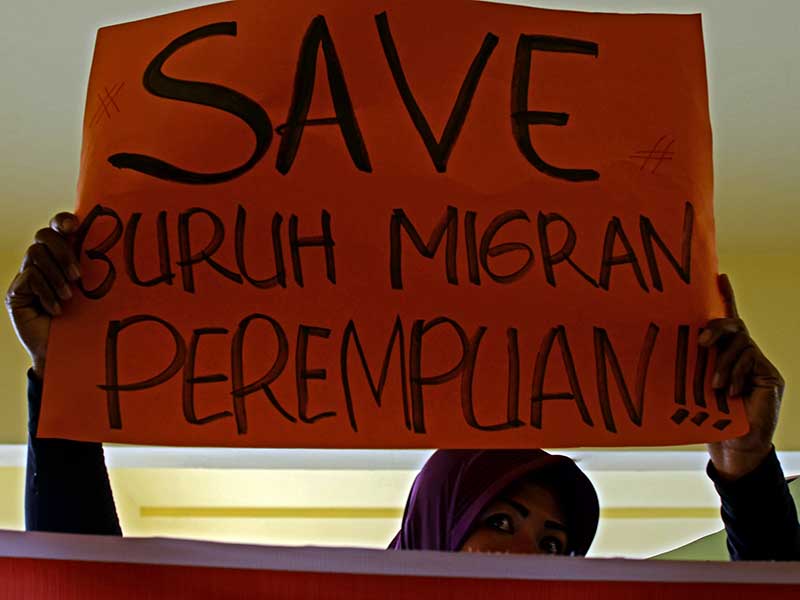 SAVE
BURUH MIGRAN
PEREMPUAN!!!